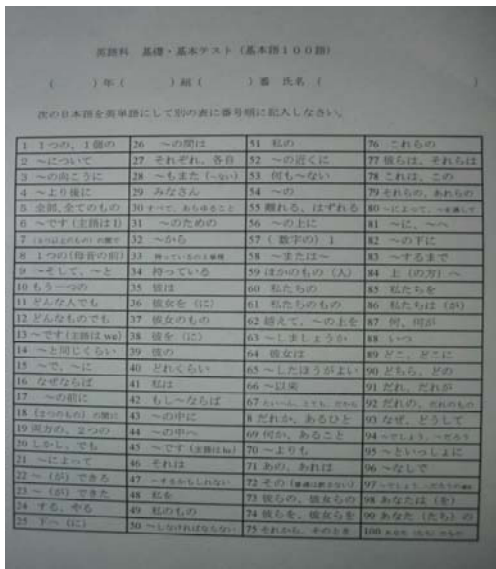 英語科 基礎・基本テスト(基本語100語)
( )年( )組( )番 氏名( )
次の日本語を英単語にして別の表に番号順に記入しなさい。
1 1つの、1個の 26 ~の間は 51 私の 76 これらの
2 ~について 27 それぞれ、各自 52 ~の近くに 77 彼らは、それらは
3 ~の向こうに 28 ~もまた(~ない) 53 何も~ない 78 これは、この
4 ~より後に 29 みなさん 54 ~の 79 それらの、あれらの
5 全部、全てのもの 30 すべて、あらゆること 55 離れる、はずれる 80 ~によって、~を通して
6 ~です(主語はI) 31 ~のための 56 ~の上に 81 ~に、~へ
7 (3つ以上のもの)の間で 32 ~から 57 (数字の)1 82 ~の下に
8 1つの(母音の前) 33 持っている 58 ~または~ 83 ~するまで
9 ~そして、~と 34 持っている 59 ほかのもの(人) 84 上(の方)へ
10 もう一つの 35 彼は 60 私たちの 85 私たちを
11 どんな人でも 36 彼女を(に) 61 私たちのもの 86 私たちは(が)
12 どんなものでも 37 彼女のもの 62 越えて、~の上を 87 何、何が
13 ~です(主語はwe) 38 彼を(に) 63 ~しましょうか 88 いつ
14 ~と同じくらい 39 彼の 64 彼女は 89 どこ、どこに
15 ~で、~に 40 どれくらい 65 ~したほうがよい 90 どちら、どの
16 なぜならば 41 私は 66 ~以来 91 だれ、だれが
17 ~の前に 42 もし~ならば 67 たいへん、とても、だから 92 だれの、だれのもの
18 (2つのもの)の間に 43 ~の中に 8 だれか、あるひと 93 なぜ、どうして
19 両方の、2つの 44 ~の中へ 69 何か、あること 94 ~でしょう、~だろう
20 しかし、でも 45 ~です(主語はhe) 70 ~よりも 95 ~といっしょに
21 ~によって 46 それは 71 あの、あれは 96 ~なしで
22 ~(が)できる 47 ~するかもしれない 72 その 97
23 ~(が)できた 48 私を 73 彼らの、彼女らの 98 あなたは(を)
24 する、やる 49 私のもの 74 彼らを、彼女らを 99 あなた(たち)の
25 下へ(に) 50 ~しなければならない 75 それから、そのとき 100